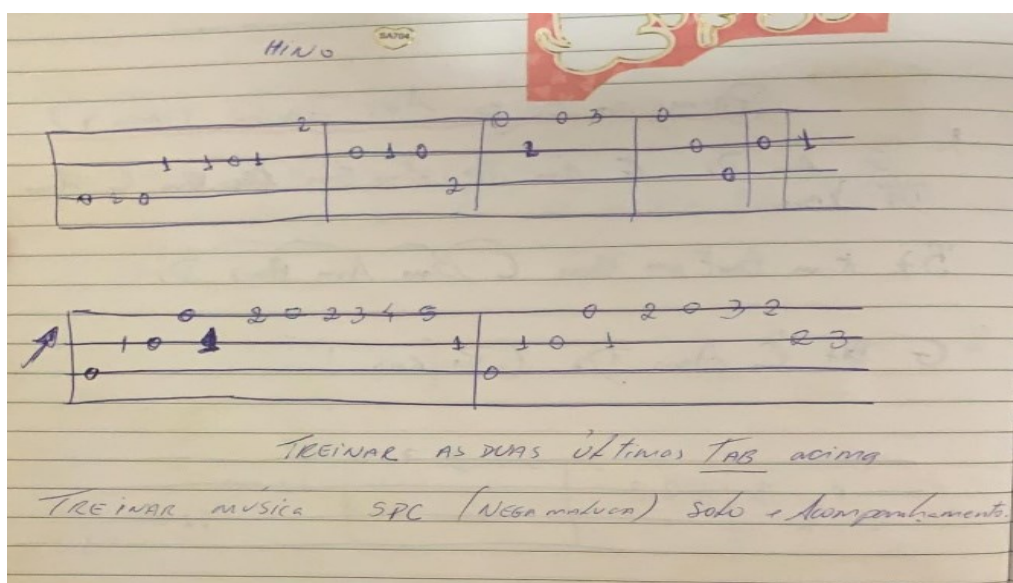 HINO
SA704
2 0 0 3 0
1 1 0 1 0 1 0 1 0 0 1
0 2 0 2 0
0 2 0 2 3 4 5 0 2 0 3 2
1 0 1 1 1 0 1 2 3
0 0
TREINAR AS DUAS ÚLTIMAS TAB acima
TREINAR MÚSICA SPC (NEGA MALUCA) Solo e Acompanhamento.